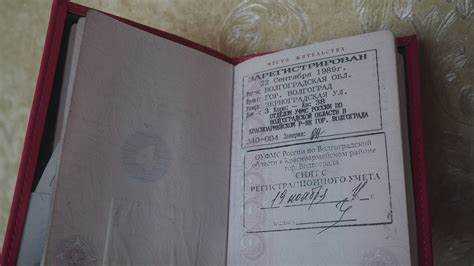 МЕСТО ЖИТЕЛЬСТВА
ЗАРЕГИСТРИРОВАН
22 Сентября 1989г.
ВОЛГОГРАДСКАЯ ОБЛ.
ГОР. ВОЛГОГРАД
ЗЕРНОГРАДСКАЯ УЛ.
3 Корп: - Кв: 38
ОТДЕЛОМ УФМС РОССИИ ПО
ВОЛГОГРАДСКОЙ ОБЛАСТИ В
КРАСНОАРМЕЙСКОМ Р-НЕ ГОР. ВОЛГОГРАДА
340-004 Заверил:
ОУФМС России по Волгоградской
области в Красноармейском районе
гор. Волгограда
СНЯТ С
РЕГИСТРАЦИОННОГО УЧЕТА
19 ноября